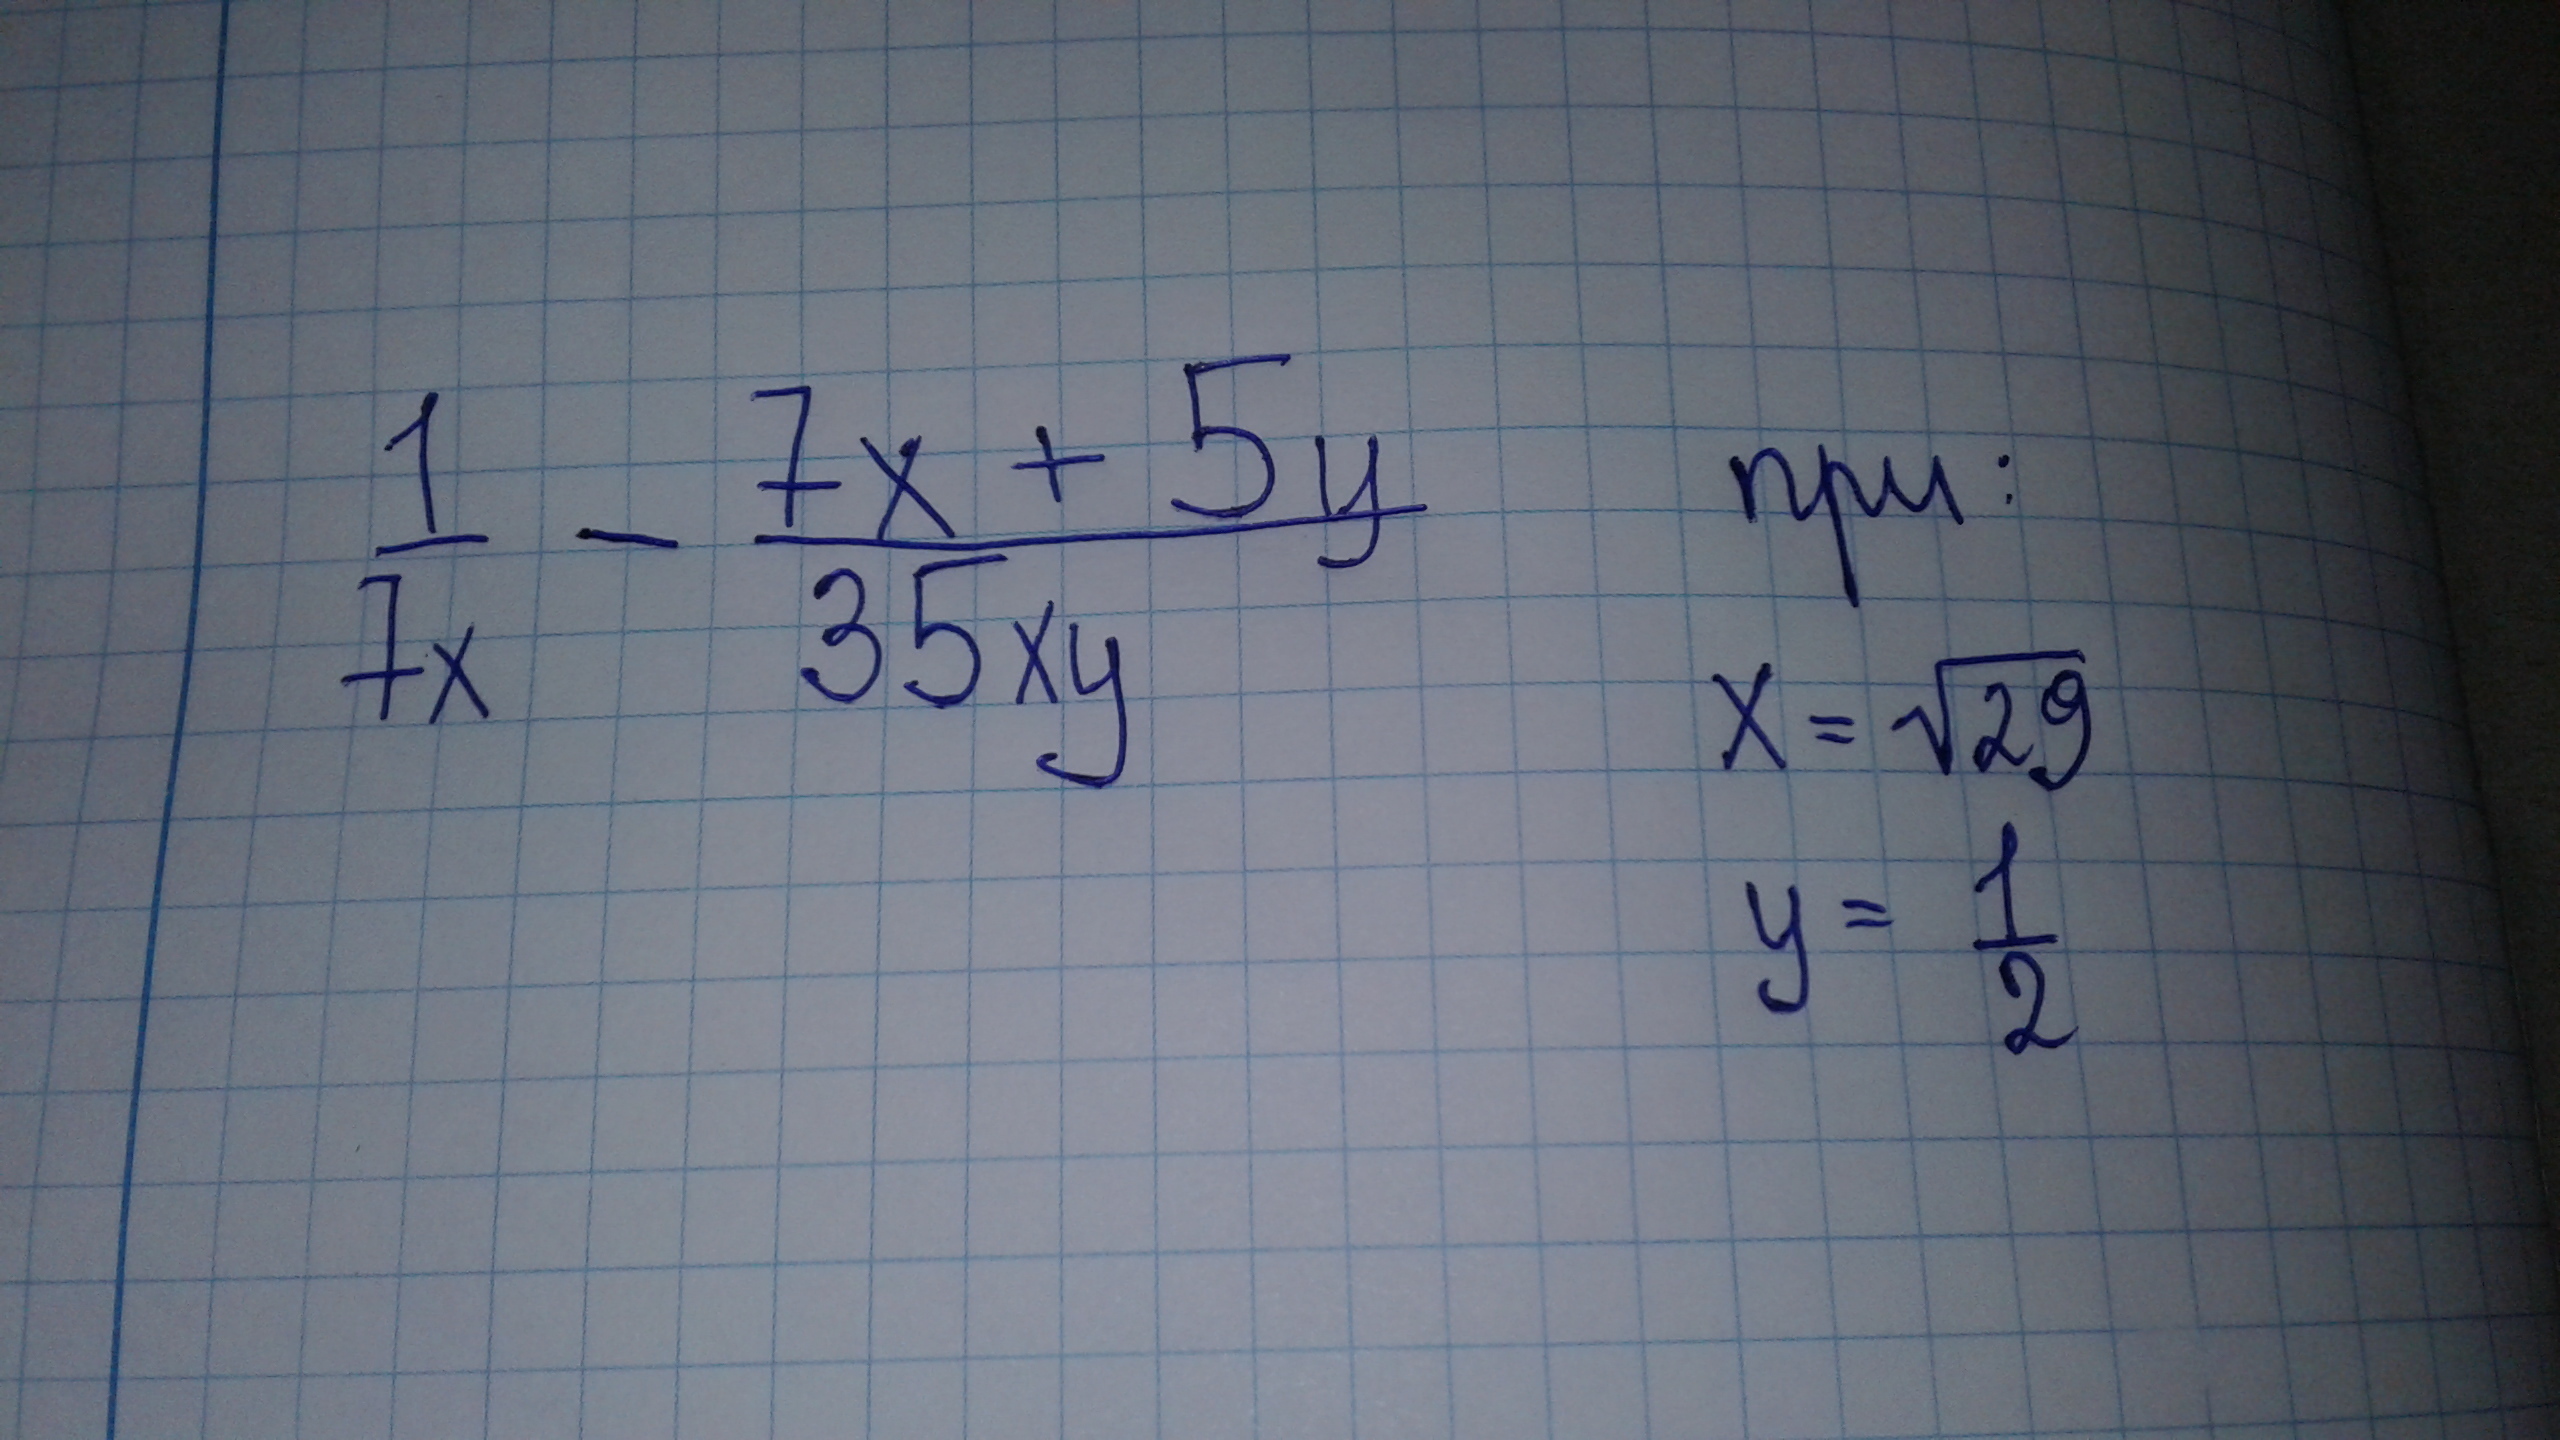 1/7x - (7x + 5y)/35xy при:
x = √29
y = 1/2